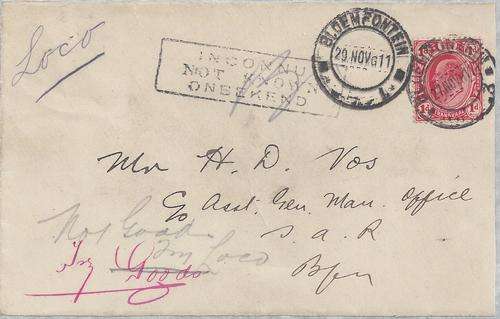 Loco
INCONNU
NOT KNOWN
ONBEKEND
BLOEMFONTEIN
29 NOV 11
Mr H. D. Vos
C/o Asst. Gen. Man. Office
S. A. R
Bfn
Not Good
Try Loco
Try Goods